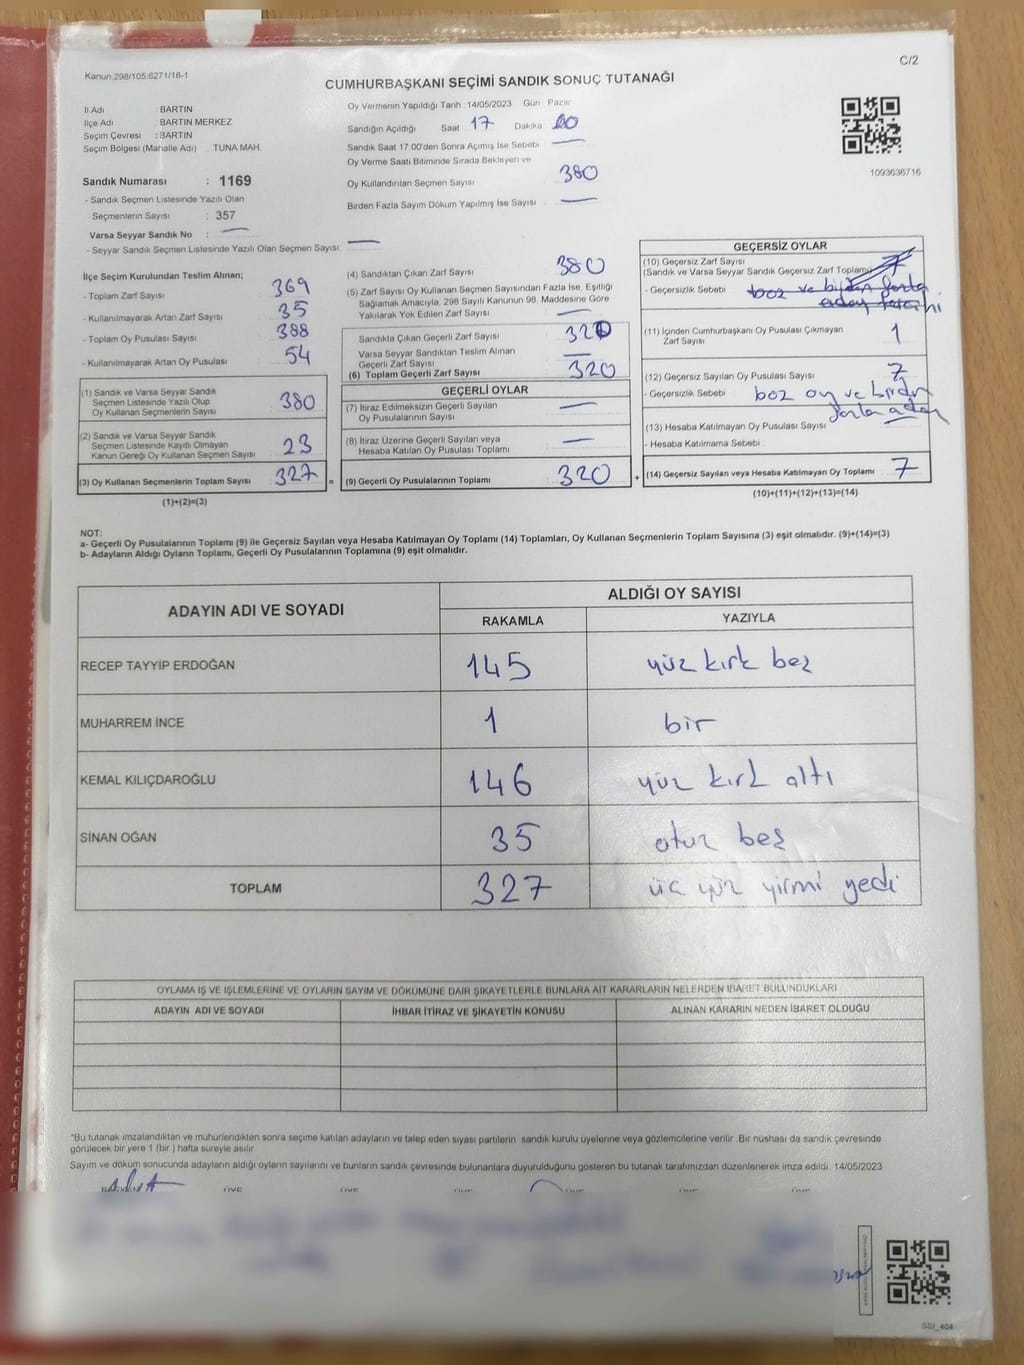 Kanun:298/105;6271/18-1
C/2
CUMHURBAŞKANI SEÇİMİ SANDIK SONUÇ TUTANAĞI
İl Adı : BARTIN
İlçe Adı : BARTIN MERKEZ
Seçim Çevresi : BARTIN
Seçim Bölgesi (Mahalle Adı) : TUNA MAH.
Sandık Numarası : 1169
- Sandık Seçmen Listesinde Yazılı Olan
Seçmenlerin Sayısı : 357
Varsa Seyyar Sandık No : —
- Seyyar Sandık Seçmen Listesinde Yazılı Olan Seçmen Sayısı : —
Oy Vermenin Yapıldığı Tarih :14/05/2023 Gün : Pazar
Sandığın Açıldığı Saat 17 Dakika
Sandık Saat 17.00'den Sonra Açımış İse Sebebi : —
Oy Verme Saati Bitiminde Sırada Bekleyen ve
Oy Kullandırılan Seçmen Sayısı 380
Birden Fazla Sayım Döküm Yapılmış İse Sayısı : —
1093636716
İlçe Seçim Kurulundan Teslim Alınan;
- Toplam Zarf Sayısı : 369
- Kullanılmayarak Artan Zarf Sayısı : 35
- Toplam Oy Pusulası Sayısı : 388
- Kullanılmayarak Artan Oy Pusulası : 54
(1) Sandık ve Varsa Seyyar Sandık
Seçmen Listesinde Yazılı Olup
Oy Kullanan Seçmenlerin Sayısı : 380
(2) Sandık ve Varsa Seyyar Sandık
Seçmen Listesinde Kayıtlı Olmayan
Kanun Gereği Oy Kullanan Seçmen Sayısı : 23
(3) Oy Kullanan Seçmenlerin Toplam Sayısı : 327 =
(1)+(2)=(3)
(4) Sandıktan Çıkan Zarf Sayısı : 380
(5) Zarf Sayısı Oy Kullanan Seçmen Sayısından Fazla İse, Eşitliği
Sağlamak Amacıyla, 298 Sayılı Kanunun 98. Maddesine Göre
Yakılarak Yok Edilen Zarf Sayısı : —
Sandıkta Çıkan Geçerli Zarf Sayısı : 320
Varsa Seyyar Sandıktan Teslim Alınan
Geçerli Zarf Sayısı : —
(6) Toplam Geçerli Zarf Sayısı : 320
GEÇERLİ OYLAR
(7) İtiraz Edilmeksizin Geçerli Sayılan
Oy Pusulalarının Sayısı : —
(8) İtiraz Üzerine Geçerli Sayılan veya
Hesaba Katılan Oy Pusulası Toplamı : —
(9) Geçerli Oy Pusulalarının Toplamı : 320 +
GEÇERSİZ OYLAR
(10) Geçersiz Zarf Sayısı
(Sandık ve Varsa Seyyar Sandık Geçersiz Zarf Toplamı) 7
- Geçersizlik Sebebi : boz ve birden fazla
(11) İçinden Cumhurbaşkanı Oy Pusulası Çıkmayan
Zarf Sayısı : 1
(12) Geçersiz Sayılan Oy Pusulası Sayısı : 7
- Geçersizlik Sebebi : boz oy ve birden
fazla aday
(13) Hesaba Katılmayan Oy Pusulası Sayısı :
- Hesaba Katılmama Sebebi :
(14) Geçersiz Sayılan veya Hesaba Katılmayan Oy Toplamı : 7
(10)+(11)+(12)+(13)=(14)
NOT:
a- Geçerli Oy Pusulalarının Toplamı (9) ile Geçersiz Sayılan veya Hesaba Katılmayan Oy Toplamı (14) Toplamları, Oy Kullanan Seçmenlerin Toplam Sayısına (3) eşit olmalıdır. (9)+(14)=(3)
b- Adayların Aldığı Oyların Toplamı, Geçerli Oy Pusulalarının Toplamına (9) eşit olmalıdır.
ADAYIN ADI VE SOYADI
ALDIĞI OY SAYISI
RAKAMLA YAZIYLA
RECEP TAYYİP ERDOĞAN 145 yüz kırk beş
MUHARREM İNCE 1 bir
KEMAL KILIÇDAROĞLU 146 yüz kırk altı
SİNAN OĞAN 35 otuz beş
TOPLAM 327 üç yüz yirmi yedi
OYLAMA İŞ VE İŞLEMLERİNE VE OYLARIN SAYIM VE DÖKÜMÜNE DAİR ŞİKAYETLERLE BUNLARA AİT KARARLARIN NELERDEN İBARET BULUNDUKLARI
ADAYIN ADI VE SOYADI İHBAR İTİRAZ VE ŞİKAYETİN KONUSU ALINAN KARARIN NEDEN İBARET OLDUĞU
*Bu tutanak imzalandıktan ve mühürlendikten sonra seçime katılan adayların ve talep eden siyasi partilerin sandık kurulu üyelerine veya gözlemcilerine verilir. Bir nüshası da sandık çevresinde
görülecek bir yere 1 (bir) hafta süreyle asılır.
Sayım ve döküm sonucunda adayların aldığı oyların sayılarını ve bunların sandık çevresinde bulunanlara duyurulduğunu gösteren bu tutanak tarafımızdan düzenlenerek imza edildi. 14/05/2023